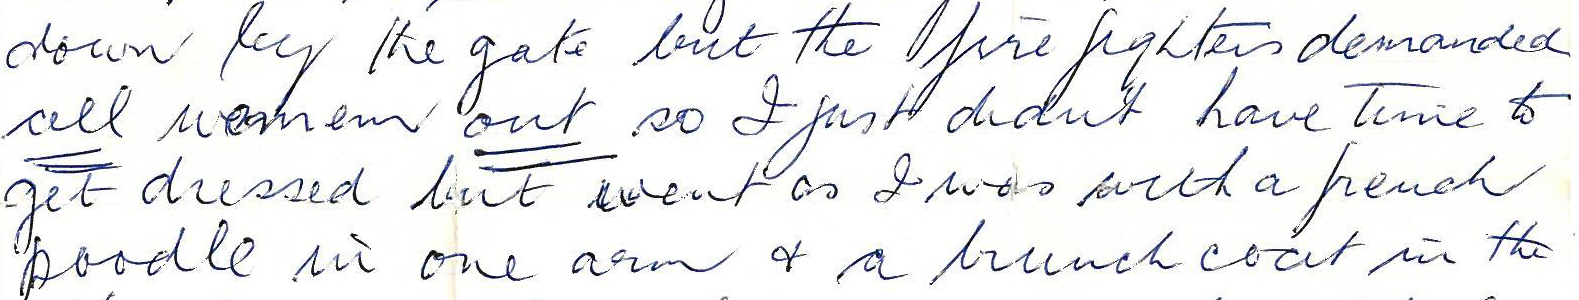 down by the gate but the fire fighters demanded
all women out so I just didn't have time to
get dressed but went as I was with a french
poodle in one arm & a brunch coat in the